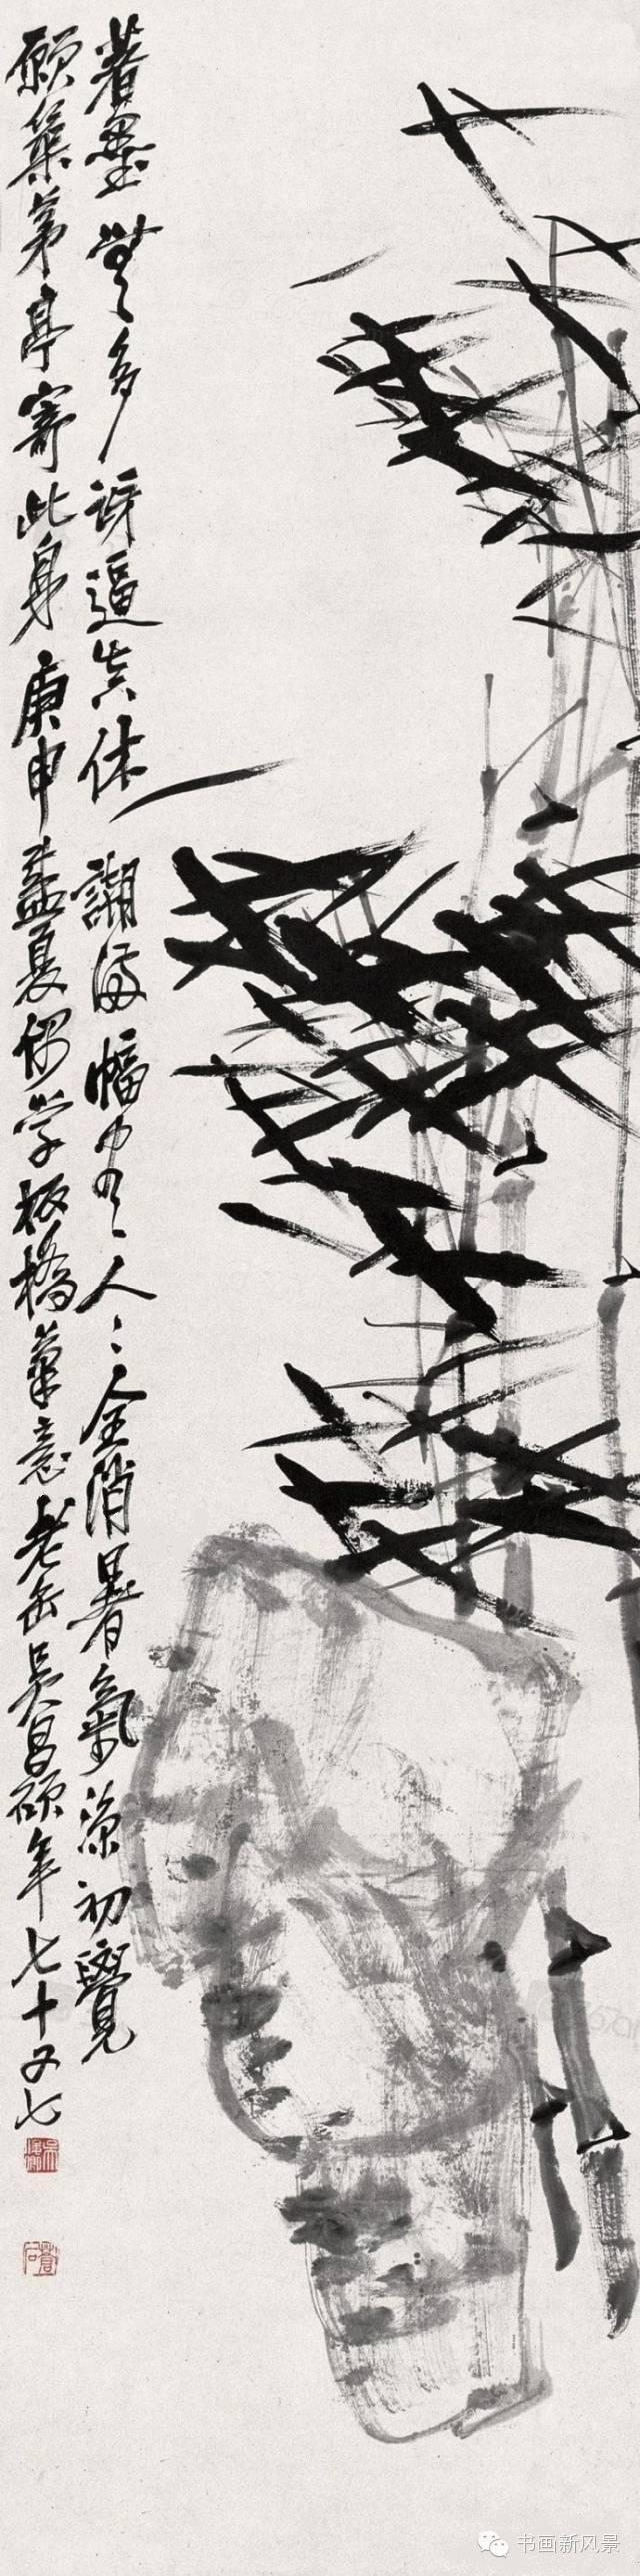 著墨無多訝逼真休嘲滿幅人人全消暑氣涼初覺
願築茅亭寄此身庚申孟夏偶學板橋筆意老缶吳昌碩年七十又七
书画新风景